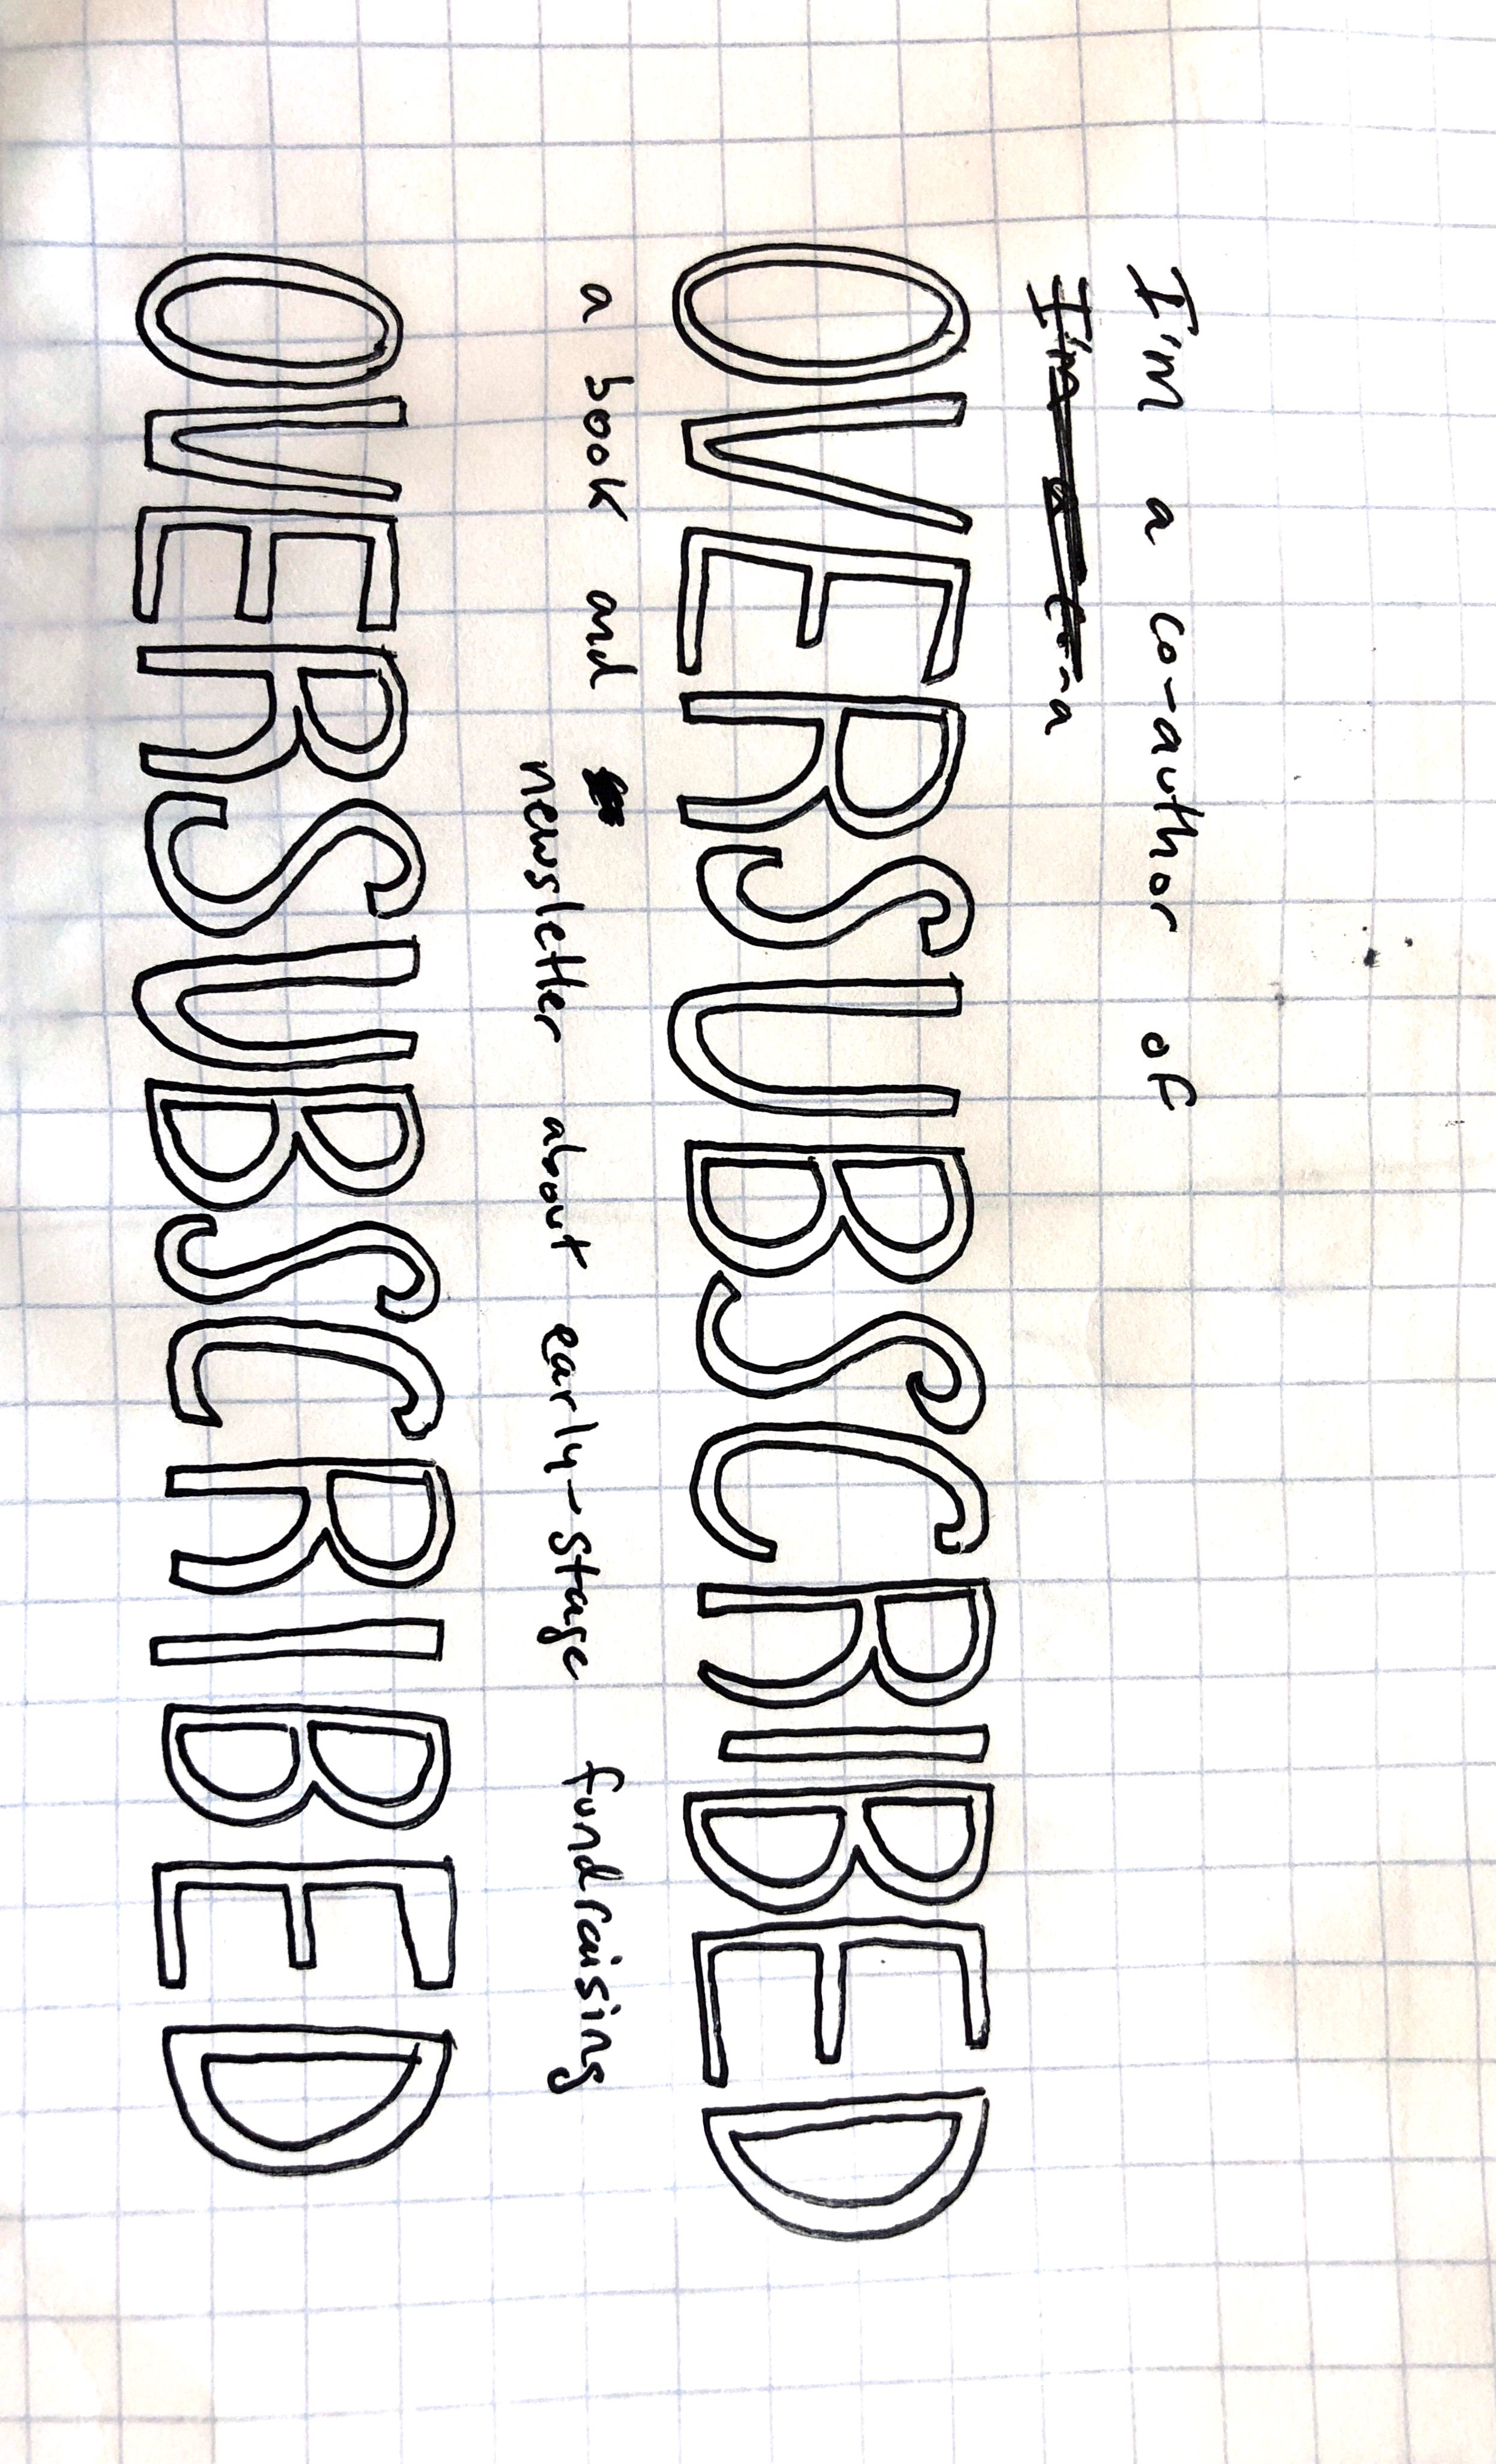 I'm a co-author of
OVERSUBSCRIBED
a book and
newsletter about early-stage fundraising
OVERSUBSCRIBED